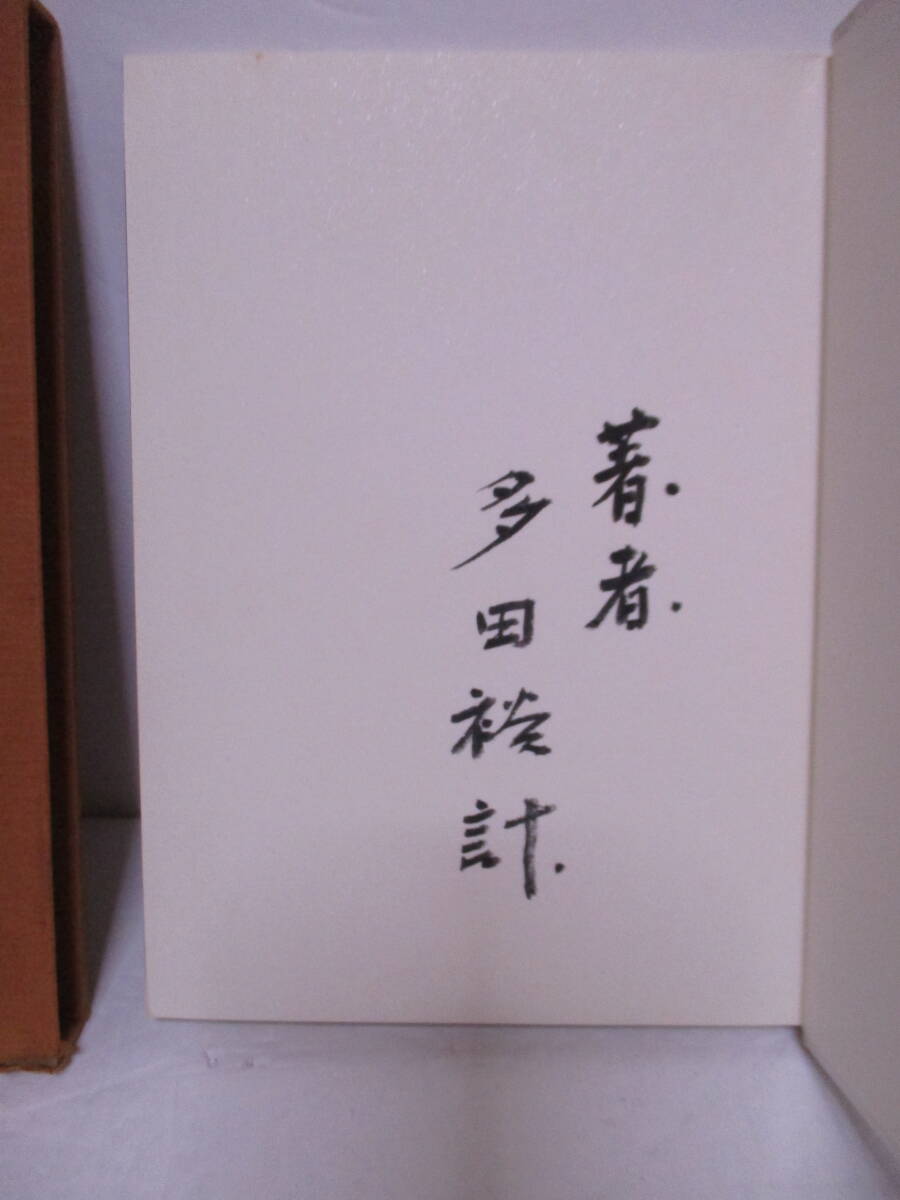 著者.
多田裕計.